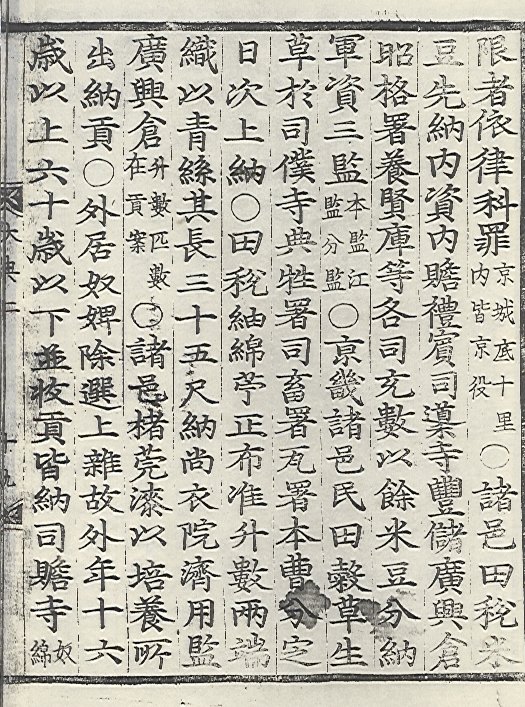 限者依律科罪京城底十里內皆京役○諸邑田稅米
豆先納內資內贍禮賓司䆃寺豐儲廣興倉
昭格署養賢庫等各司充數以餘米豆分納
軍資三監本監江監分監○京畿諸邑民田穀草生
草於司僕寺典牲署司畜署瓦署本曹分定
日次上納○田稅紬綿苧正布准升數兩端
織以靑絲其長三十五尺納尙衣院濟用監
廣興倉升數匹數在貢案○諸邑楮莞漆以培養所
出納貢○外居奴婢除選上雜故外年十六
歲以上六十歲以下並收貢皆納司贍寺奴綿